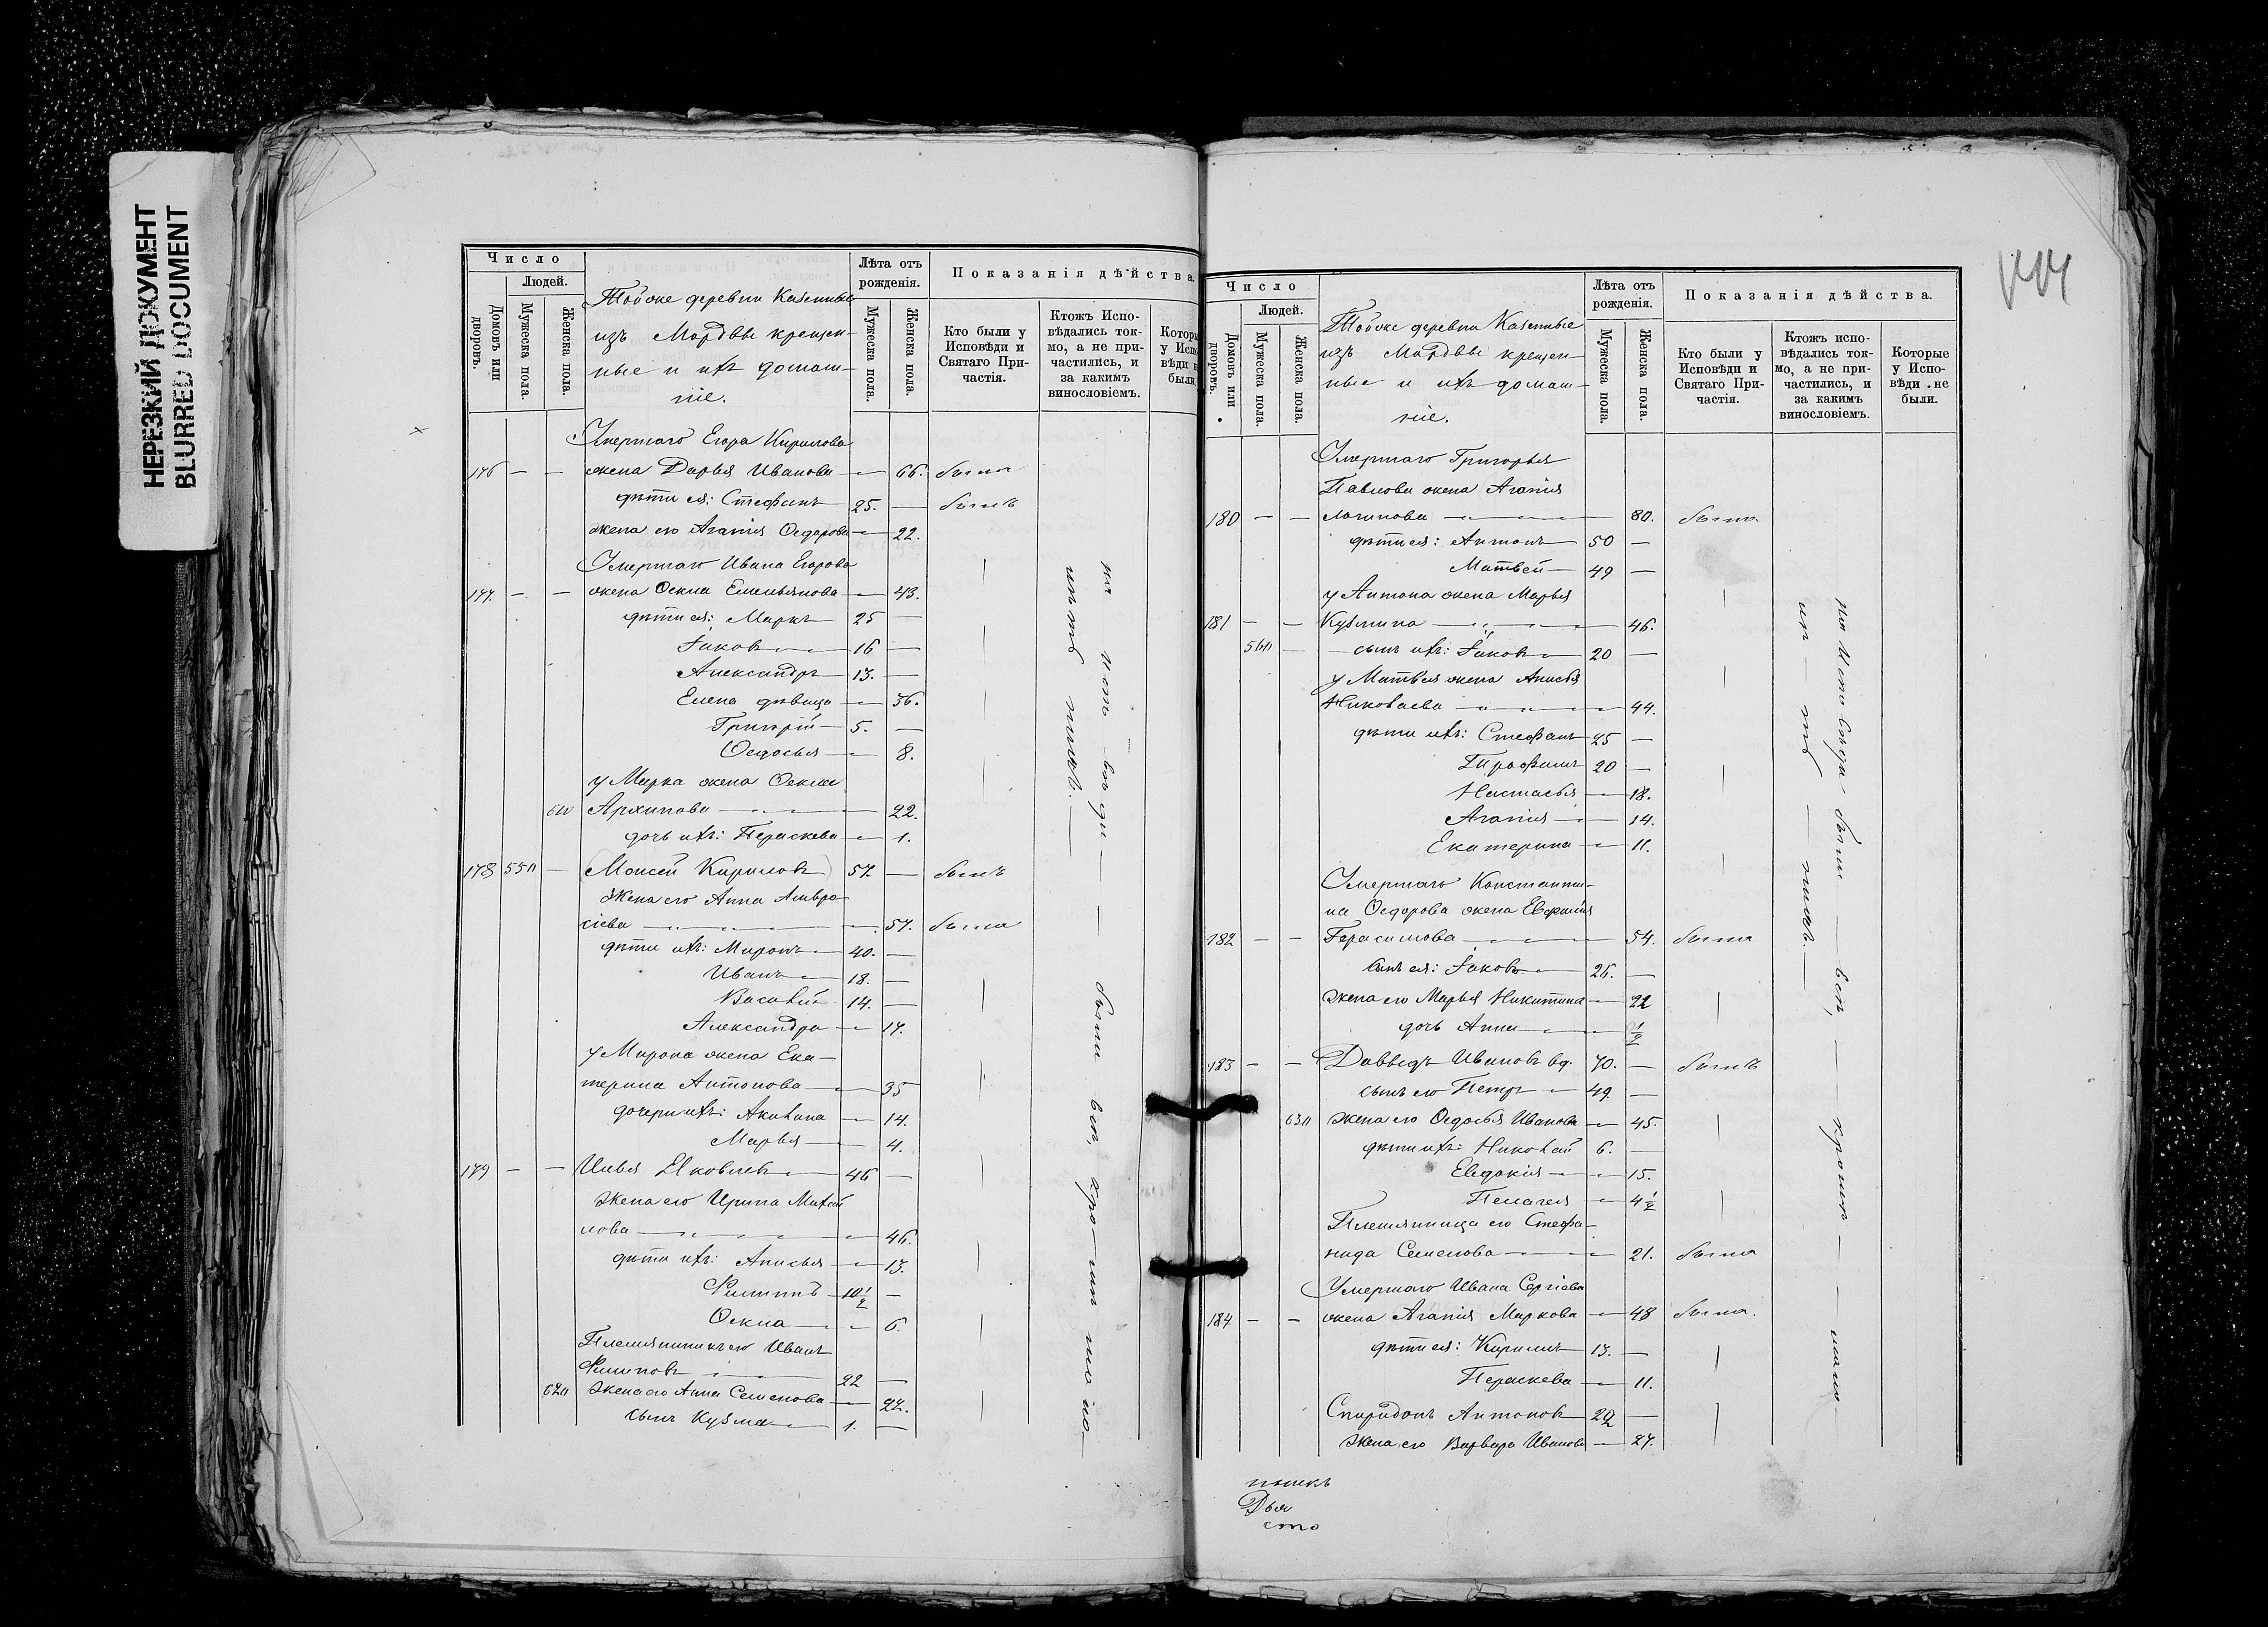 НЕРЕЗКИЙ ДОКУМЕНТ
BLURRED DOCUMENT
Число
Людей.
Домовъ или дворовъ.
Мужеска пола.
Женска пола.
Тойже деревни Казенные
изъ Мордвы крещен-
ные и ихъ домаш-
ніе.
Лѣта отъ рожденія.
Мужеска пола.
Женска пола.
Показанія дѣйства.
Кто были у Исповѣди и Святаго Причастія.
Ктожъ Испо-
вѣдались ток-
мо, а не при-
частились, и
за какимъ
винословіемъ.
Умершаго Егора Кирилова
176 — — жена Дарья Иванова — 66. была
дѣти ея: Стефанъ 25. — былъ
жена его Агапія Ѳедорова — 22.
Умершаго Ивана Егорова
177. — — жена Ѳекла Емельянова — 43.
дѣти ея: Маркъ 25 —
Іаковъ — 16 —
Александръ — 13. —
Елена дѣвица — 36.
Григорій — 5. —
Ѳедосья — 8.
у Марка жена Ѳекла
Архипова — 22.
дочь ихъ: Параскева — 1.
178 55 — Моисей Кириловъ 57. — былъ
Жена его Анна Амвро-
сіева — 57. была
дѣти ихъ: Миронъ — 40. —
Иванъ — 18. —
Василій 14. —
Александра — 17.
у Мирона жена Ека-
терина Антонова — 35
дочери ихъ: Акилина — 14.
Марья — 4.
179 — — Илья Яковлевъ — 46 —
Жена его Ирина Михай
лова — 46.
дѣти ихъ: Анисья — 13.
Филиппъ — 10 1/2 —
Ѳекла — 6.
Племянникъ его Иванъ
Филиповъ 22 —
62 Жена его Анна Семенова — 27.
сынъ Кузма — 1. —
Число
Людей.
Домовъ или дворовъ.
Мужеска пола.
Женска пола.
Тойже деревни Казенные
изъ Мордвы крещен-
ные и ихъ домаш-
ніе.
Лѣта отъ рожденія.
Мужеска пола
Женска пола.
Показанія дѣйства.
Кто были у
Исповѣди и
Святаго При-
частія.
Ктожъ испо-
вѣдались ток-
мо, а не при-
частились, и
за какимъ
винословіемъ.
Которые
у Испо-
вѣди не
были.
Умершаго Григорья
Павлова жена Агапія
180 — — Логинова — 80. была
дѣти ея: Антонъ 50 —
Матвей — 49 —
у Антона жена Марья
181 — — Кузмина — 46.
56 — сынъ ихъ: Іаковъ — 20 —
у Матвея жена Анисья
Николаева — 44.
дѣти ихъ: Стефанъ 25 —
Трофимъ 20 —
Настасья — 18.
Агапія — 14.
Екатерина — 11.
Умершаго Константи-
на Ѳедорова жена Евфимія
182 — — Герасимова — 54. была
сынъ ея: Іаковъ — 26. —
жена его Марья Никитина — 22
дочь Анна — 1/2
183 — — Давыдъ Ивановъ вд. 70. — былъ
сынъ его Петръ — 49 —
63 Жена его Ѳедосья Иванова — 45.
дѣти ихъ: Николай 6. —
Евдокія — 15.
Пелагея — 4 1/2
Племянница его Стефа-
нида Семенова — 21. была
Умершаго Ивана Сергіева
184 — — жена Агапія Маркова — 48 была.
дѣти ея: Кирилъ 13. —
Параскева — 11.
Спиридонъ Антоновъ 29 —
Жена его Варвара Иванова — 27.
Двѣ
сто